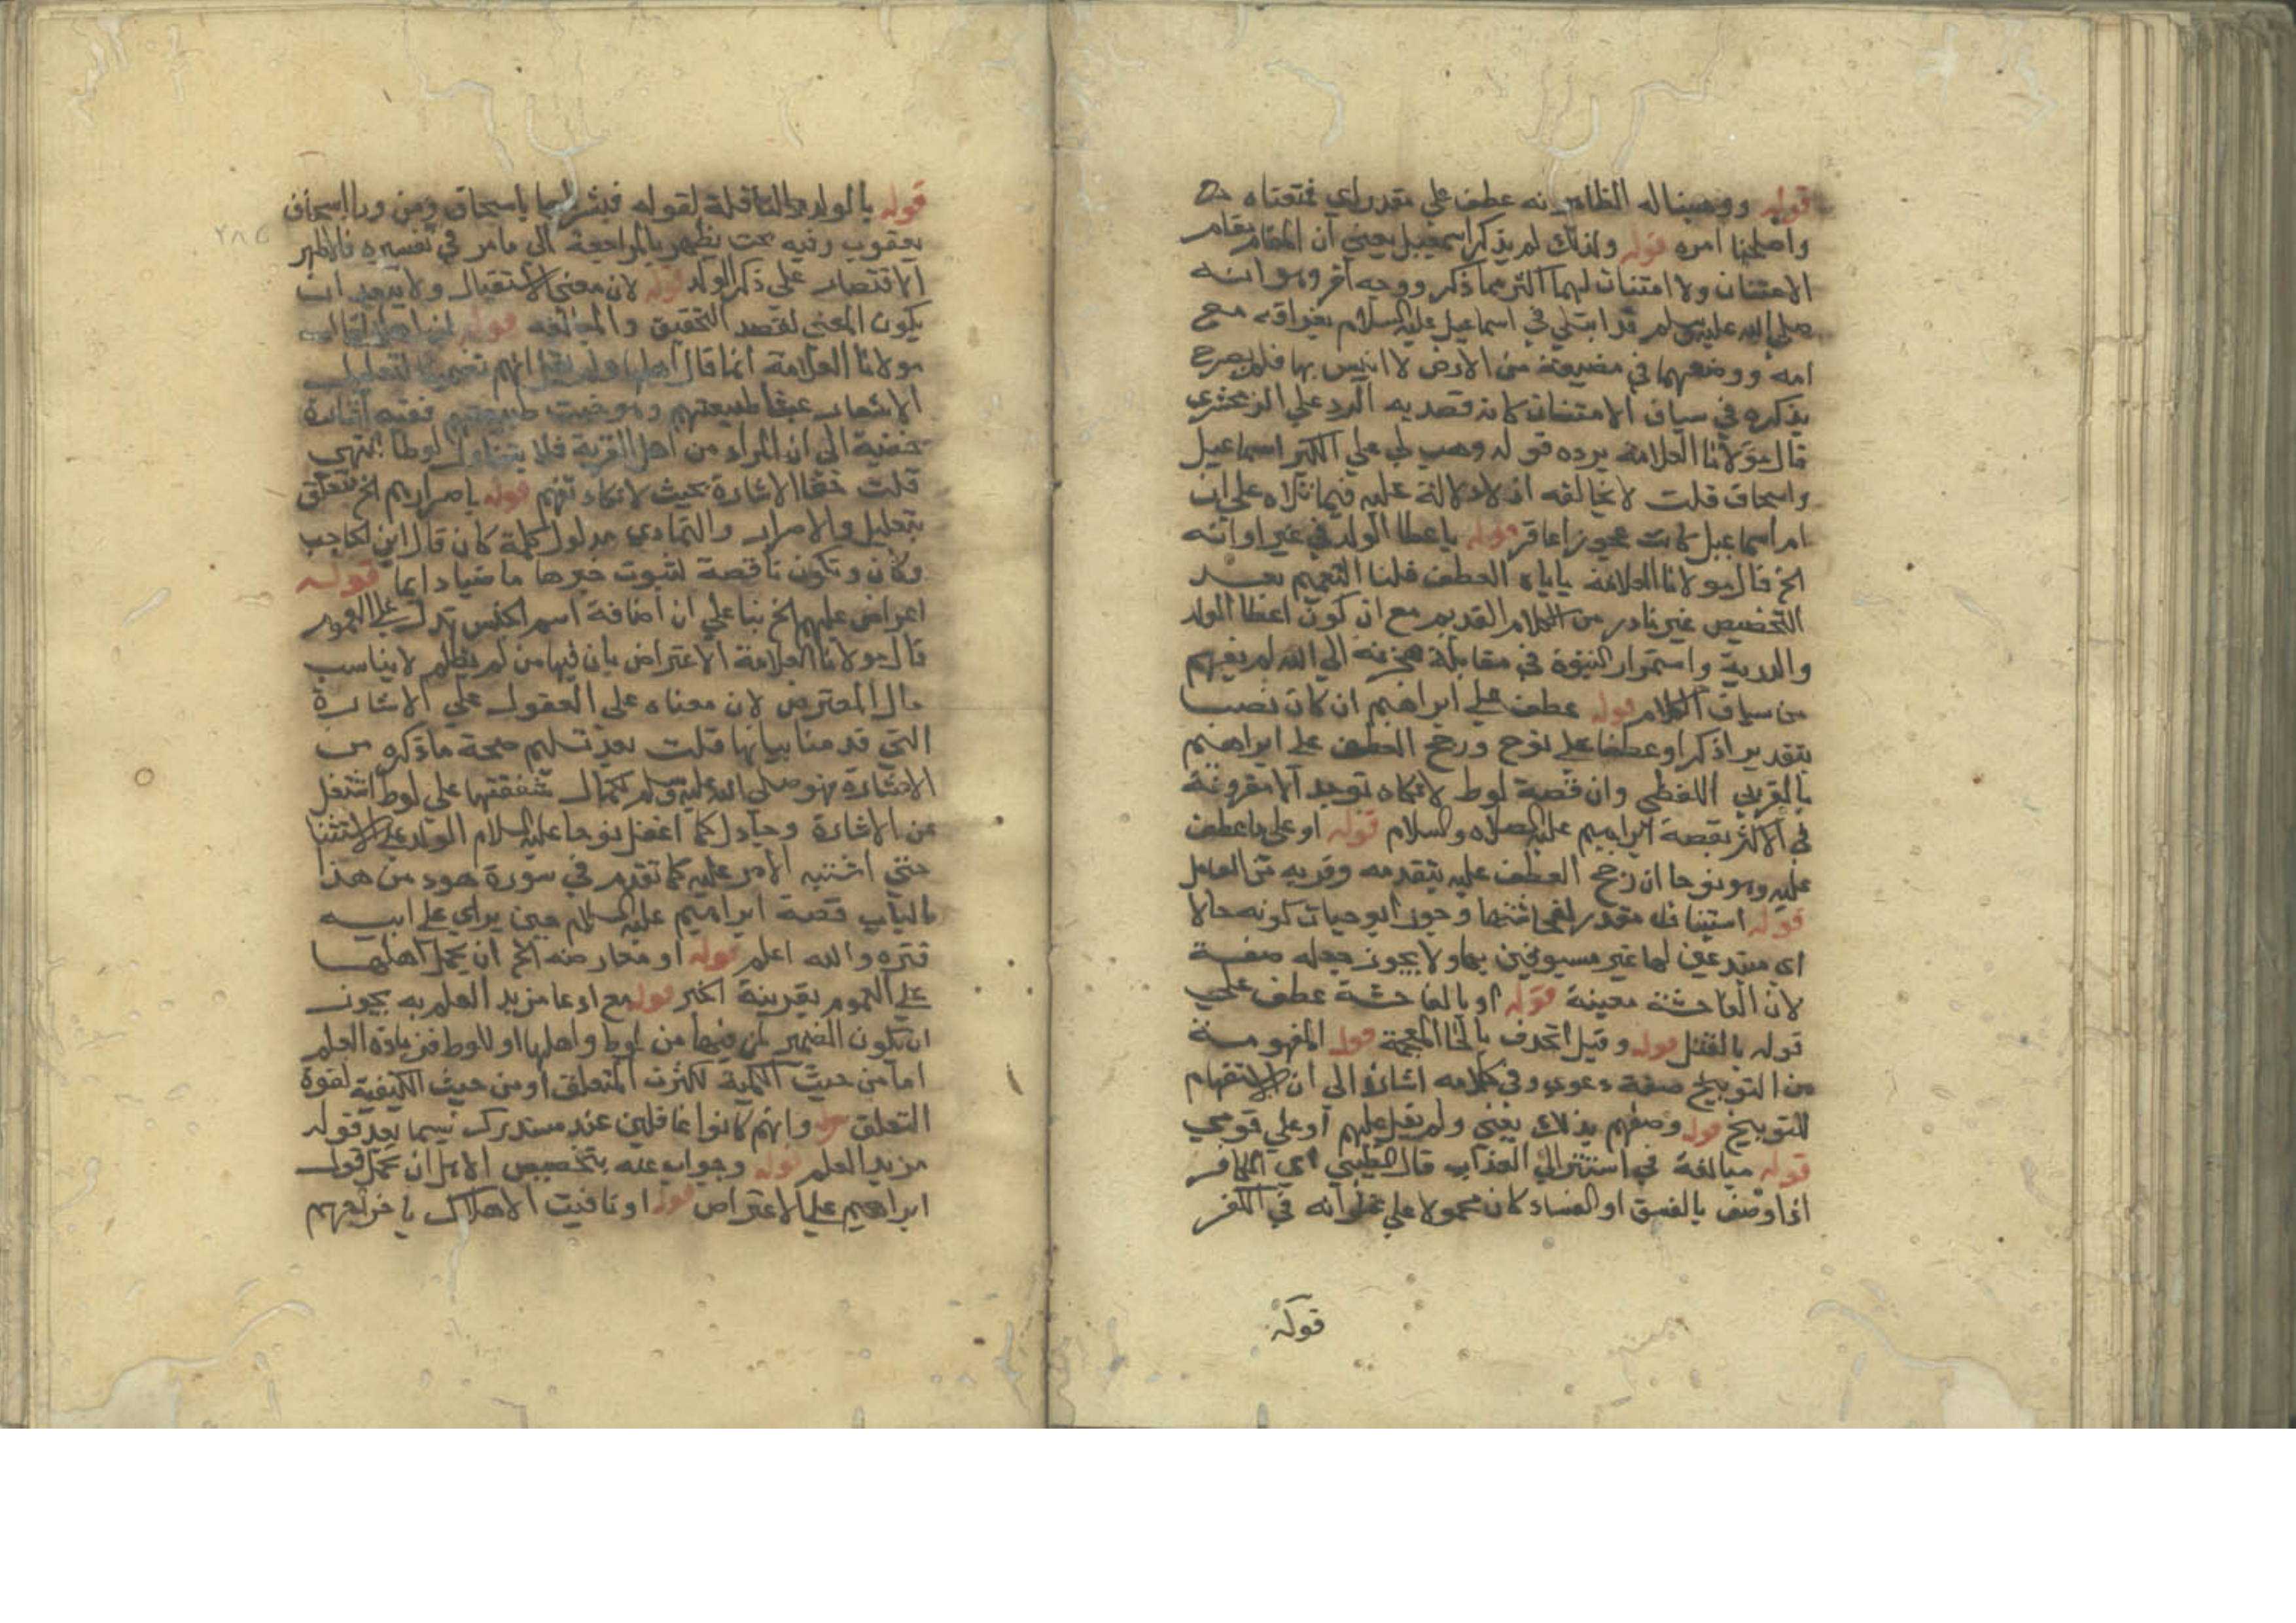 قوله ووهبنا له الظاهر انه عطف علي مقدر اي فمتعناه
واصلحنا امره قوله ولذلك لم يذكر اسمعيل يعني ان المقام مقام
الامتنان ولا امتنان لهما اكثر مما ذكر ووجه اخر وهو انه
صلي الله عليه وسلم قد ابتلي في اسماعيل عليه السلام بفراقه مع
امه ووضعهما في مضيعة من الارض لا انيس بها فلم يصرح
بذكره في سياق الامتنان كانه قصد به الرد علي الزمخشري
قال مولانا العلامة يرده قوله وهب لي علي الكبر اسماعيل
واسحاق قلت لا يخالفه اذ لا دلالة عليه فيما تلاه علي ان
ام اسماعيل كانت عجوزا عاقر قوله باعطا الولد في غير اوانه
الخ قال مولانا العلامة ياباه العطف قلنا التعميم بعد
التخصيص غير نادر من الكلام القديم مع ان كون اعطا الولد
والذرية واستمرار النبوة في مقابلة هجرته الي الله لم يفهم
من سياق الكلام قوله عطف علي ابراهيم ان كان نصب
بتقدير اذكر او عطفا علي نوح ورجح العطف علي ابراهيم
بالقرب اللفظي وان قصة لوط لا تكاد توجد الا مقرونة
في الاكثر بقصة ابراهيم عليه الصلاه والسلام قوله او علي ما عطف
عليه وهو نوحا ان رجح العطف عليه بتقدمه وقربه من العامل
قوله استيناف مقدر لفحاشتها وجوز ابو حيان كونه حالا
اي مبتدعين لها غير مسبوقين بها ولا يجوز جعله صفة
لان الفاحشة معينة قوله او بالفاحشة عطف علي
قوله بالقتل قوله وقيل الخذف بالخا المعجمة قوله المفهومة
من التوبيخ صفة دعوي وفي كلامه اشارة الي ان الاستفهام
للتوبيخ قوله وصفهم بذلك يعني ولم يقل عليهم او علي قومي
قوله مبالغة في استنزال العذاب قال الطيبي اي الكافر
اذا وصف بالفسق او الفساد كان محمولا علي غلوانه في الكفر
قوله
قوله بالولد والنافلة لقوله فبشرناها باسحاق ومن ورا اسحاق
يعقوب وفيه بحث يظهر بالمراجعة الي ما مر في تفسيره فالاظهر
الاقتصار علي ذكر الولد قوله لان معني الاستقبال ولا يبعد ان
يكون المعني لقصد التحقيق والمبالغه قوله ان اهلها قال
مولانا العلامة انما قال اهلها ولم يقل انهم
الاشعار طبيعتهم وهو خبث طبيعتهم ففيه اشارة
خفية الي ان المراد من اهل القرية فلا يتناول لوطا انتهي
قلت خفا الاشارة بحيث لا تكاد تفهم قوله باصرارهم الخ متعلق
بتعليل والاصرار والتمادي مدلول كلمة كان قال ابن الحاجب
وكان وتكون ناقصة لثبوت خبرها ماضيا دايما قوله
اعراض عليهم الخ بنا علي ان اضافة اسم الجنس تدل علي العموم
قال مولانا العلامة الاعتراض بان فيها من لم يظلم لا يناسب
حال المعترض لان معناه علي العقول علي الاشارة
التي قدمنا بيانها قلت بعد تسليم صحة ما ذكره من
الاشارة فهو صلي الله عليه وسلم لكمال شفقتها علي لوط اشتغل
عن الاشارة وجادل كما اغفل نوحا عليه السلام الولد عن الاستثنا
حتي اشتبه الامر عليه كما تقدم في سورة هود من هذا
الباب قصة ابراهيم عليه السلام حين يراي علي ابيه
قتره والله اعلم قوله او معارضه الخ ان يحمل اهلها
علي العموم بقرينة الخبر قوله مع ادعا مزيد العلم به يجوز
ان يكون الضمير لمن فيها من لوط واهلها او للوط فزيادة العلم
اما من حيث الكمية لكثرت المتعلق او من حيث الكيفية لقوة
التعلق قوله وانهم كانوا غافلين عند مستدرك سيما بعد قوله
مزيد العلم قوله وجواب عنه بتخصيص الاهل ان يحمل قول
ابراهيم علي الاعتراض قوله او تاقيت الاهلاك باخراجهم